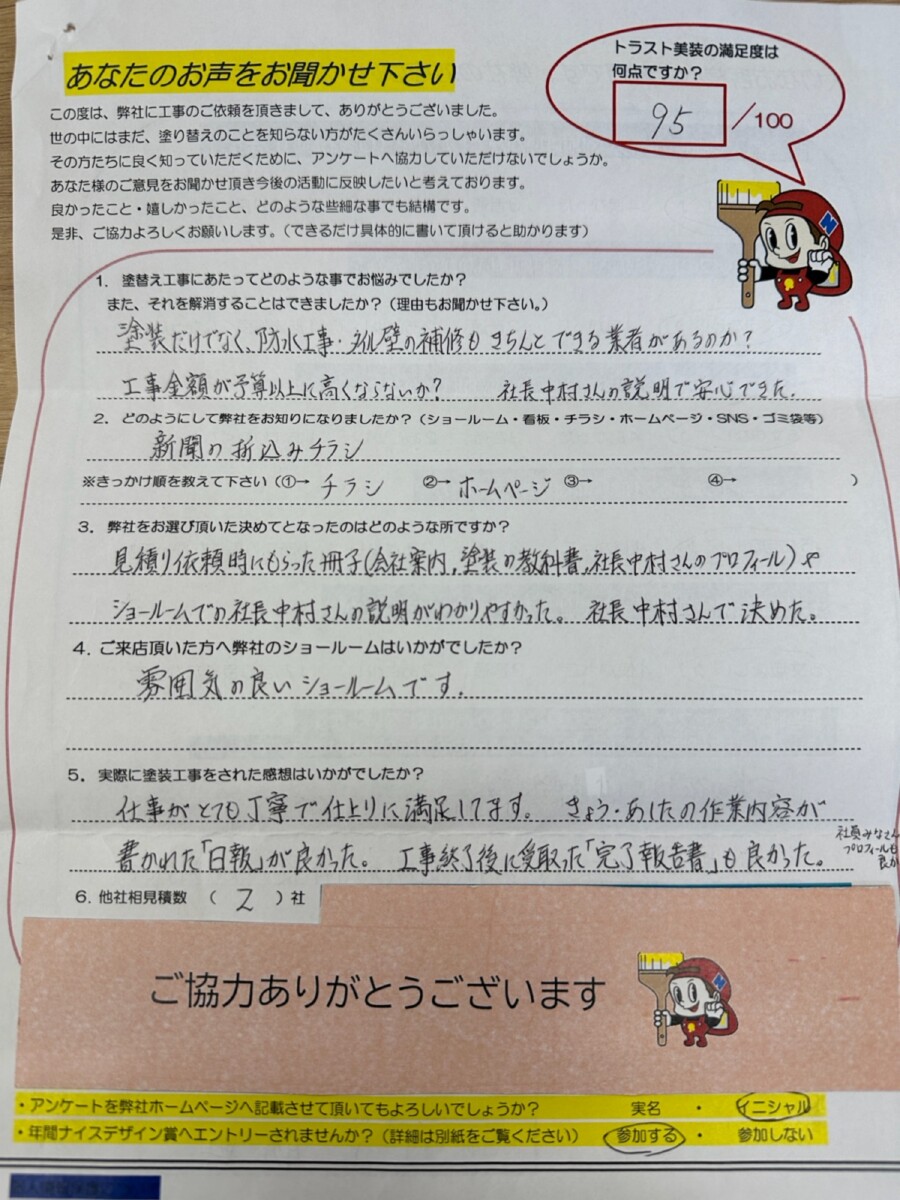 あなたのお声をお聞かせ下さい
トラスト美装の満足度は
何点ですか？
95 /100
この度は、弊社に工事のご依頼を頂きまして、ありがとうございました。
世の中にはまだ、塗り替えのことを知らない方がたくさんいらっしゃいます。
その方たちに良く知っていただくために、アンケートへ協力していただけないでしょうか。
あなた様のご意見をお聞かせ頂き今後の活動に反映したいと考えております。
良かったこと・嬉しかったこと、どのような些細な事でも結構です。
是非、ご協力よろしくお願いします。（できるだけ具体的に書いて頂けると助かります）
1. 塗替え工事にあたってどのような事でお悩みでしたか？
また、それを解消することはできましたか？（理由もお聞かせ下さい。）
塗装だけでなく、防水工事・タイル壁の補修もきちんとできる業者があるのか？
工事金額が予算以上に高くならないか？ 社長中村さんの説明で安心できた.
2. どのようにして弊社をお知りになりましたか？（ショールーム・看板・チラシ・ホームページ・SNS・ゴミ袋等）
新聞の折込みチラシ
※きっかけ順を教えて下さい（①→ チラシ ②→ ホームページ ③→ ④→ ）
3. 弊社をお選び頂いた決めてとなったのはどのような所ですか？
見積り依頼時にもらった冊子（会社案内,塗装の教科書,社長中村さんのプロフィール）や
ショールームでの社長中村さんの説明がわかりやすかった。 社長中村さんで決めた。
4. ご来店頂いた方へ弊社のショールームはいかがでしたか？
雰囲気の良いショールームです.
5. 実際に塗装工事をされた感想はいかがでしたか？
仕事がとても丁寧で仕上りに満足してます。 きょう・あしたの作業内容が
書かれた「日報」が良かった。 工事終了後に受取った「完了報告書」も良かった。
社員みなさん
プロフィールも
良か
6. 他社相見積数 （ 2 ）社
ご協力ありがとうございます
・アンケートを弊社ホームページへ記載させて頂いてもよろしいでしょうか？ 実名 ・ イニシャル
・年間ナイスデザイン賞へエントリーされませんか？（詳細は別紙をご覧ください） 参加する ・ 参加しない